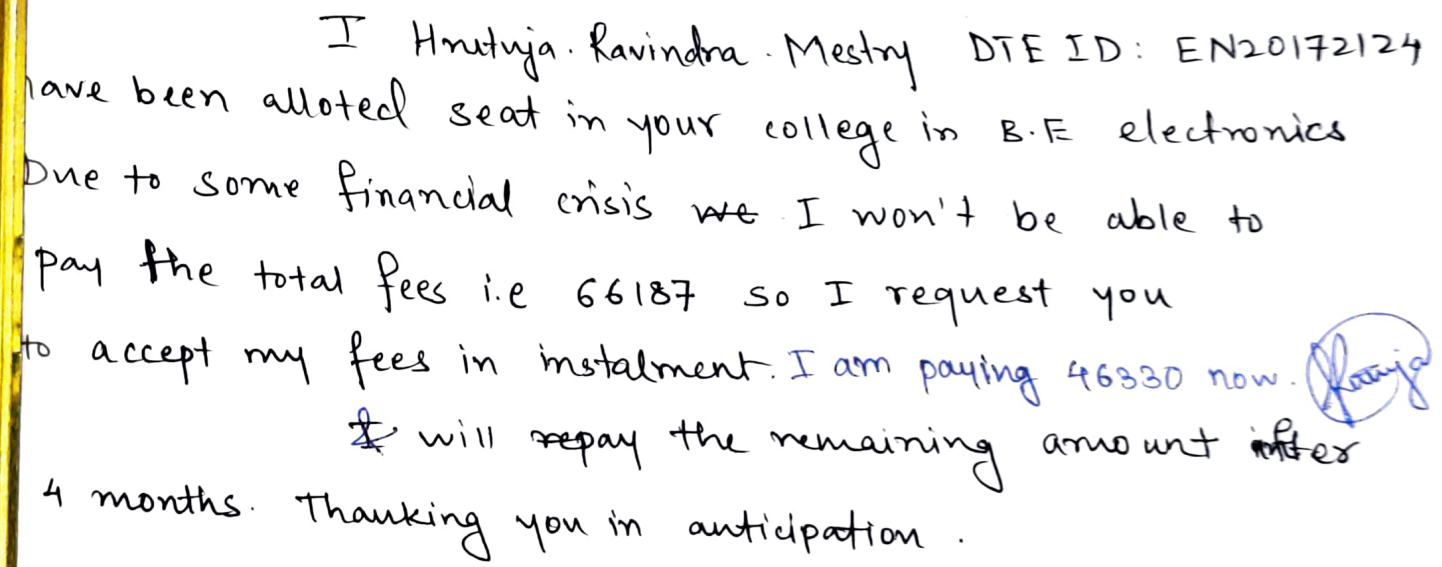 I Hrutuja. Ravindra. Mestry DTE ID: EN20172124
have been alloted seat in your college in B.E electronics
Due to some financial crisis we I won't be able to
pay the total fees i.e 66187 so I request you
to accept my fees in instalment. I am paying 46330 now.
I will repay the remaining amount after
4 months. Thanking you in anticipation.